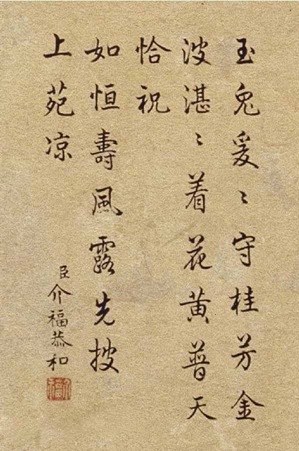 玉兔爰〻守桂芳金
波湛〻着花黄普天
恰祝
如恒壽風露先披
上苑凉
臣介福恭和